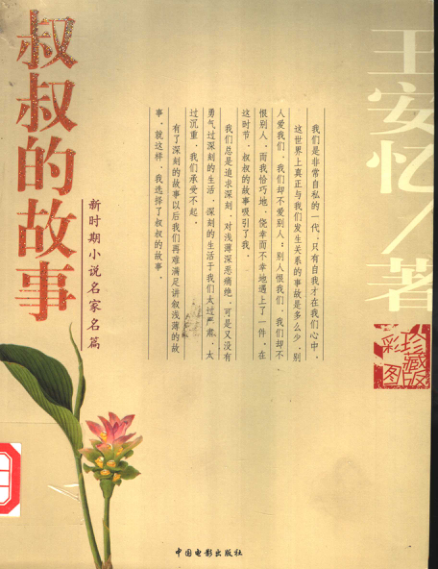 王安忆 著
珍藏版
彩图
我们是非常自私的一代，只有自我才在我们心中，
这世界上真正与我们发生关系的事故是多么少，别
人爱我们，我们却不爱别人；别人恨我们，我们却不
恨别人。而我恰巧地，侥幸而不幸地遇上了一件，在
这时节，叔叔的故事吸引了我。
我们总是追求深刻，对浅薄深恶痛绝，可是又没有
勇气过深刻的生活，深刻的生活于我们太过严肃，太
过沉重，我们承受不起。
有了深刻的故事以后我们再难满足讲叙浅薄的故
事，就这样，我选择了叔叔的故事。
新时期小说名家名篇
叔叔的故事
中国电影出版社